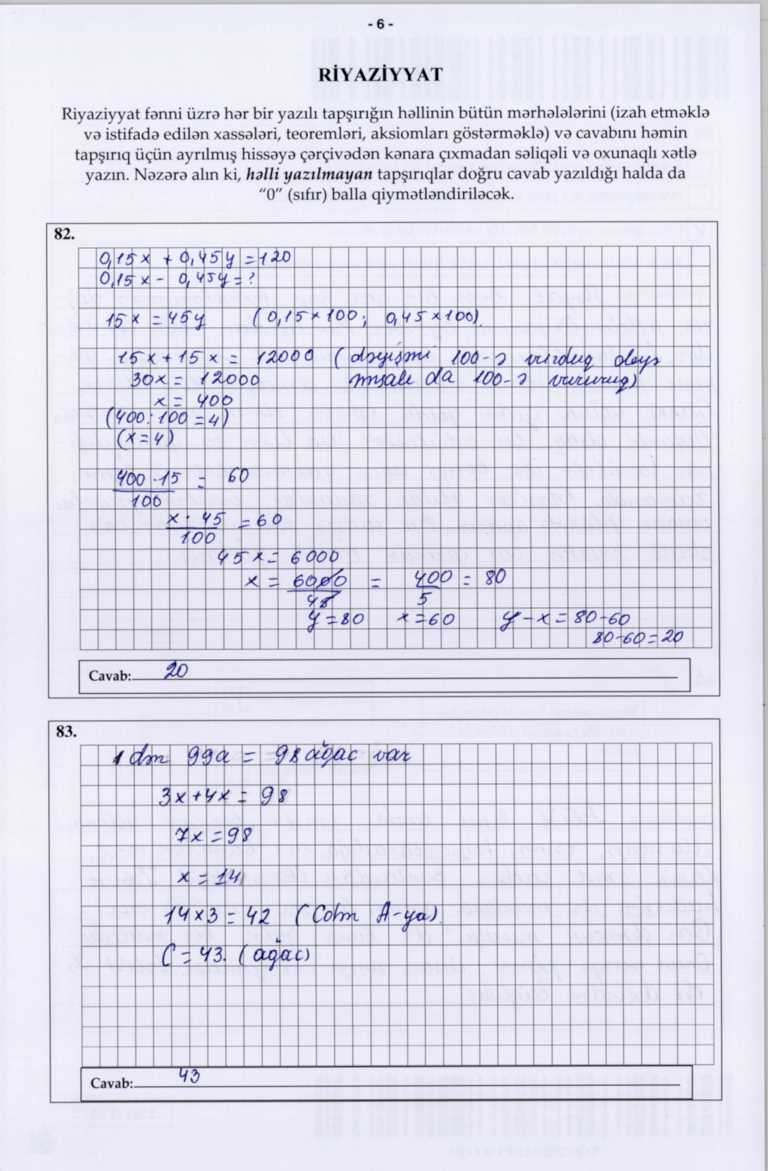 - 6 -
RİYAZİYYAT
Riyaziyyat fənni üzrə hər bir yazılı tapşırığın həllinin bütün mərhələlərini (izah etməklə
və istifadə edilən xassələri, teoremləri, aksiomları göstərməklə) və cavabını həmin
tapşırıq üçün ayrılmış hissəyə çərçivədən kənara çıxmadan səliqəli və oxunaqlı xətlə
yazın. Nəzərə alın ki, həlli yazılmayan tapşırıqlar doğru cavab yazıldığı halda da
“0” (sıfır) balla qiymətləndiriləcək.
82.
0,15x + 0,45y = 120
0,15x - 0,45y = ?
15x = 45y (0,15×100; 0,45×100)
15x + 15x = 12000 ( 100-ə vurduq deyə
30x = 12000 misalı da 100-ə vururuq)
x = 400
(400:100 = 4)
(x = 4)
400 · 15 / 100 = 60
x · 45 / 100 = 60
45x = 6000
x = 6000 / 45 = 400 / 5 = 80
y = 80 x = 60 y - x = 80 - 60
80 - 60 = 20
Cavab: 20
83.
1 dm 99a = 98 ağac var
3x + 4x = 98
7x = 98
x = 14
14 × 3 = 42 (Cdm A-ya)
C = 43. (ağac)
Cavab: 43